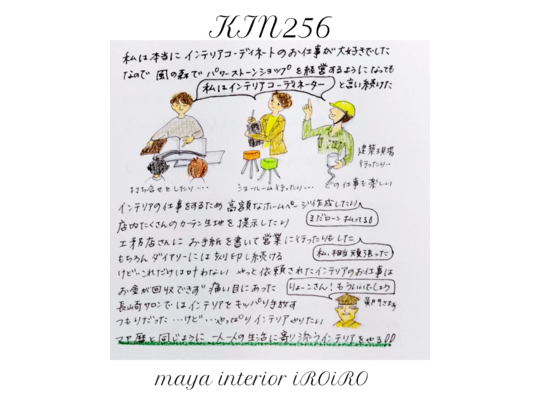 KIN256
私は本当に インテリアコーディネートのお仕事が大好きでした
なので 風の森で パワーストーンショップを経営するようになっても
私はインテリアコーディネーター と言い続けた
打ち合せをしたり…
ショールーム行ったり…
建築現場
行ったり…
どの仕事も楽しい
インテリアの仕事をするため 高額なホームページ作成したり
まだローン払ってる!!
店内たくさんのカーテン生地を提示したり
工務店さんに お手紙を書いて営業に行ったりもした
私、相当頑張った
もちろん ダイアリーには 刻印し続ける
けどこれだけは叶わない やっと依頼されたインテリアのお仕事は
お金が回収できず 痛い目にあった
りょーこさん!もういいでしょう
長山商サロンではインテリアをキッパリ手放す
つもりだった…けど…やっぱりインテリアやりたい
マヤ暦と同じように 一人一人の生活に寄り添うインテリアをやる!!
maya interior iROiRO